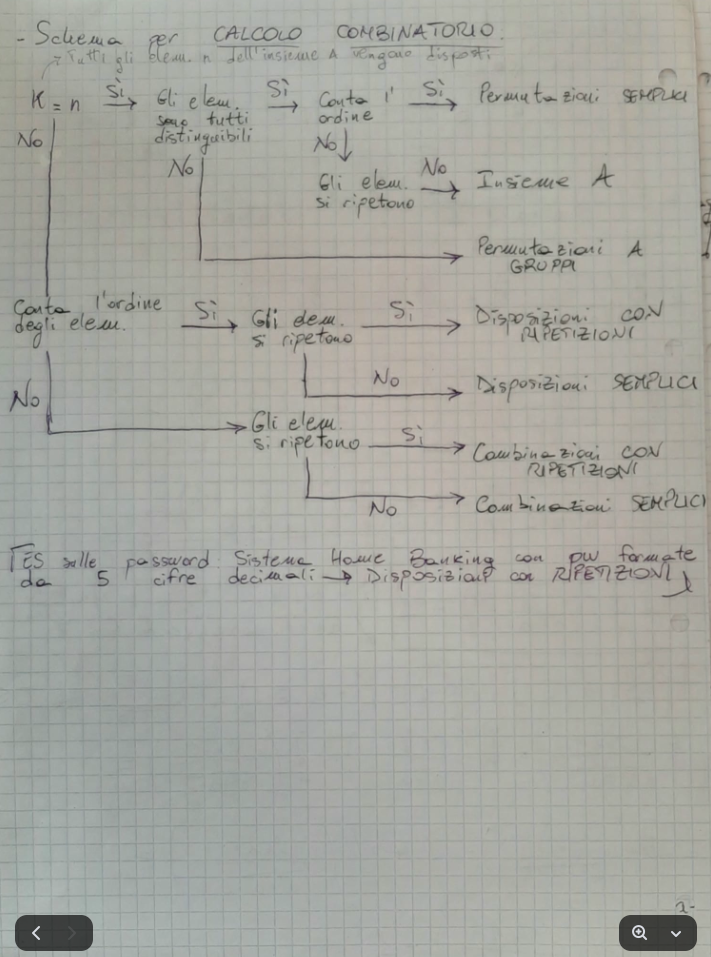 - Schema per CALCOLO COMBINATORIO.
Tutti gli elem. n dell'insieme A vengono disposti
K = n Sì Gli elem. sono tutti distinguibili Sì Conta l' ordine Sì Permutazioni SEMPLICI
No
No
No
Gli elem. si ripetono No Insieme A
Permutazioni A
GRUPPI
Conta l'ordine
degli elem. Sì Gli elem. si ripetono Sì Disposizioni CON
RIPETIZIONI
No Disposizioni SEMPLICI
No
Gli elem.
si ripetono Sì Combinazioni CON
RIPETIZIONI
No Combinazioni SEMPLICI
ES sulle password Sistema Home Banking con pw formate
da 5 cifre decimali → Disposizioni con RIPETIZIONI